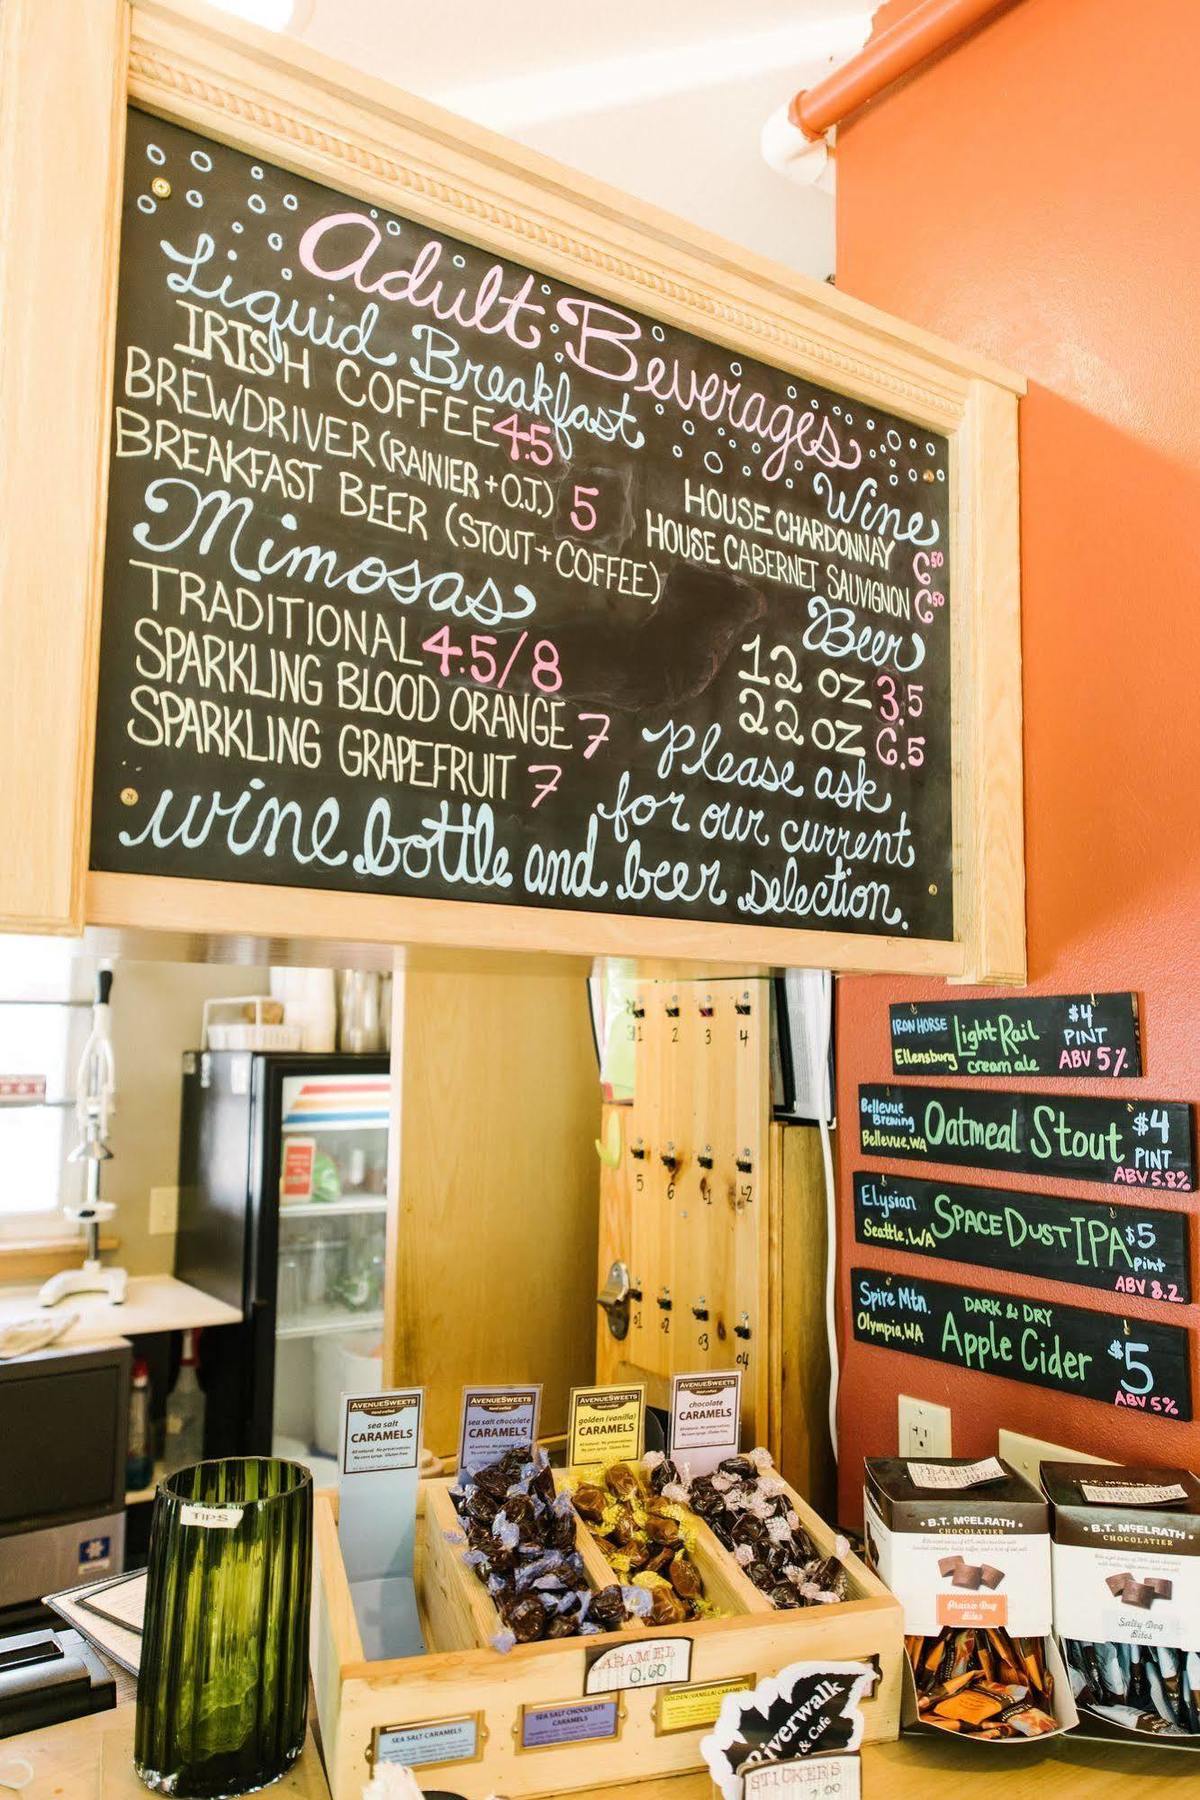 Adult Beverages
Liquid Breakfast
IRISH COFFEE 4.5
BREWDRIVER (RAINIER + O.J.) 5
BREAKFAST BEER (STOUT + COFFEE)
Mimosas
TRADITIONAL 4.5/8
SPARKLING BLOOD ORANGE 7
SPARKLING GRAPEFRUIT 7
Wine
HOUSE CHARDONNAY 6 50
HOUSE CABERNET SAUVIGNON 6 50
Beer
12 OZ 3.5
22 OZ 6.5
Please ask
for our current
wine bottle and beer selection.
IRON HORSE
Ellensburg
Light Rail
cream ale
$4
PINT
ABV 5%
Bellevue
Brewing
Bellevue, WA
Oatmeal Stout
$4
PINT
ABV 5.8%
Elysian
Seattle, WA
SPACE DUST IPA
$5
pint
ABV 8.2
Spire Mtn.
Olympia, WA
DARK & DRY
Apple Cider
$5
ABV 5%
1 2 3 4
5 6 L1 L2
01 02 03 04
AVENUESWEETS
Hand crafted
sea salt
CARAMELS
AVENUESWEETS
Hand crafted
sea salt chocolate
CARAMELS
AVENUESWEETS
Hand crafted
golden (vanilla)
CARAMELS
AVENUESWEETS
Hand crafted
chocolate
CARAMELS
TIPS
CARAMEL
0.60
SEA SALT CARAMELS
SEA SALT CHOCOLATE
CARAMELS
GOLDEN (VANILLA) CARAMELS
B.T. McELRATH
CHOCOLATIER
Prairie Dog
Bites
B.T. McELRATH
CHOCOLATIER
Salty Dog
Bites
Riverwalk
& Cafe
STICKERS